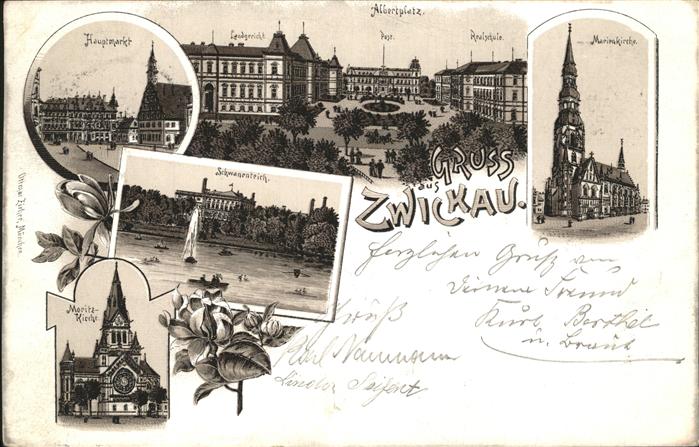 Albertplatz.
Hauptmarkt
Landgericht
Post.
Realschule.
Marienkirche.
GRUSS
aus
ZWICKAU.
Schwanenteich.
Moritz-
Kirche
München.
Herzlichen Gruß von
Deinem Freund
Kurt Berthel
u. Braut
Gruß
Karl Naumann
Seifert